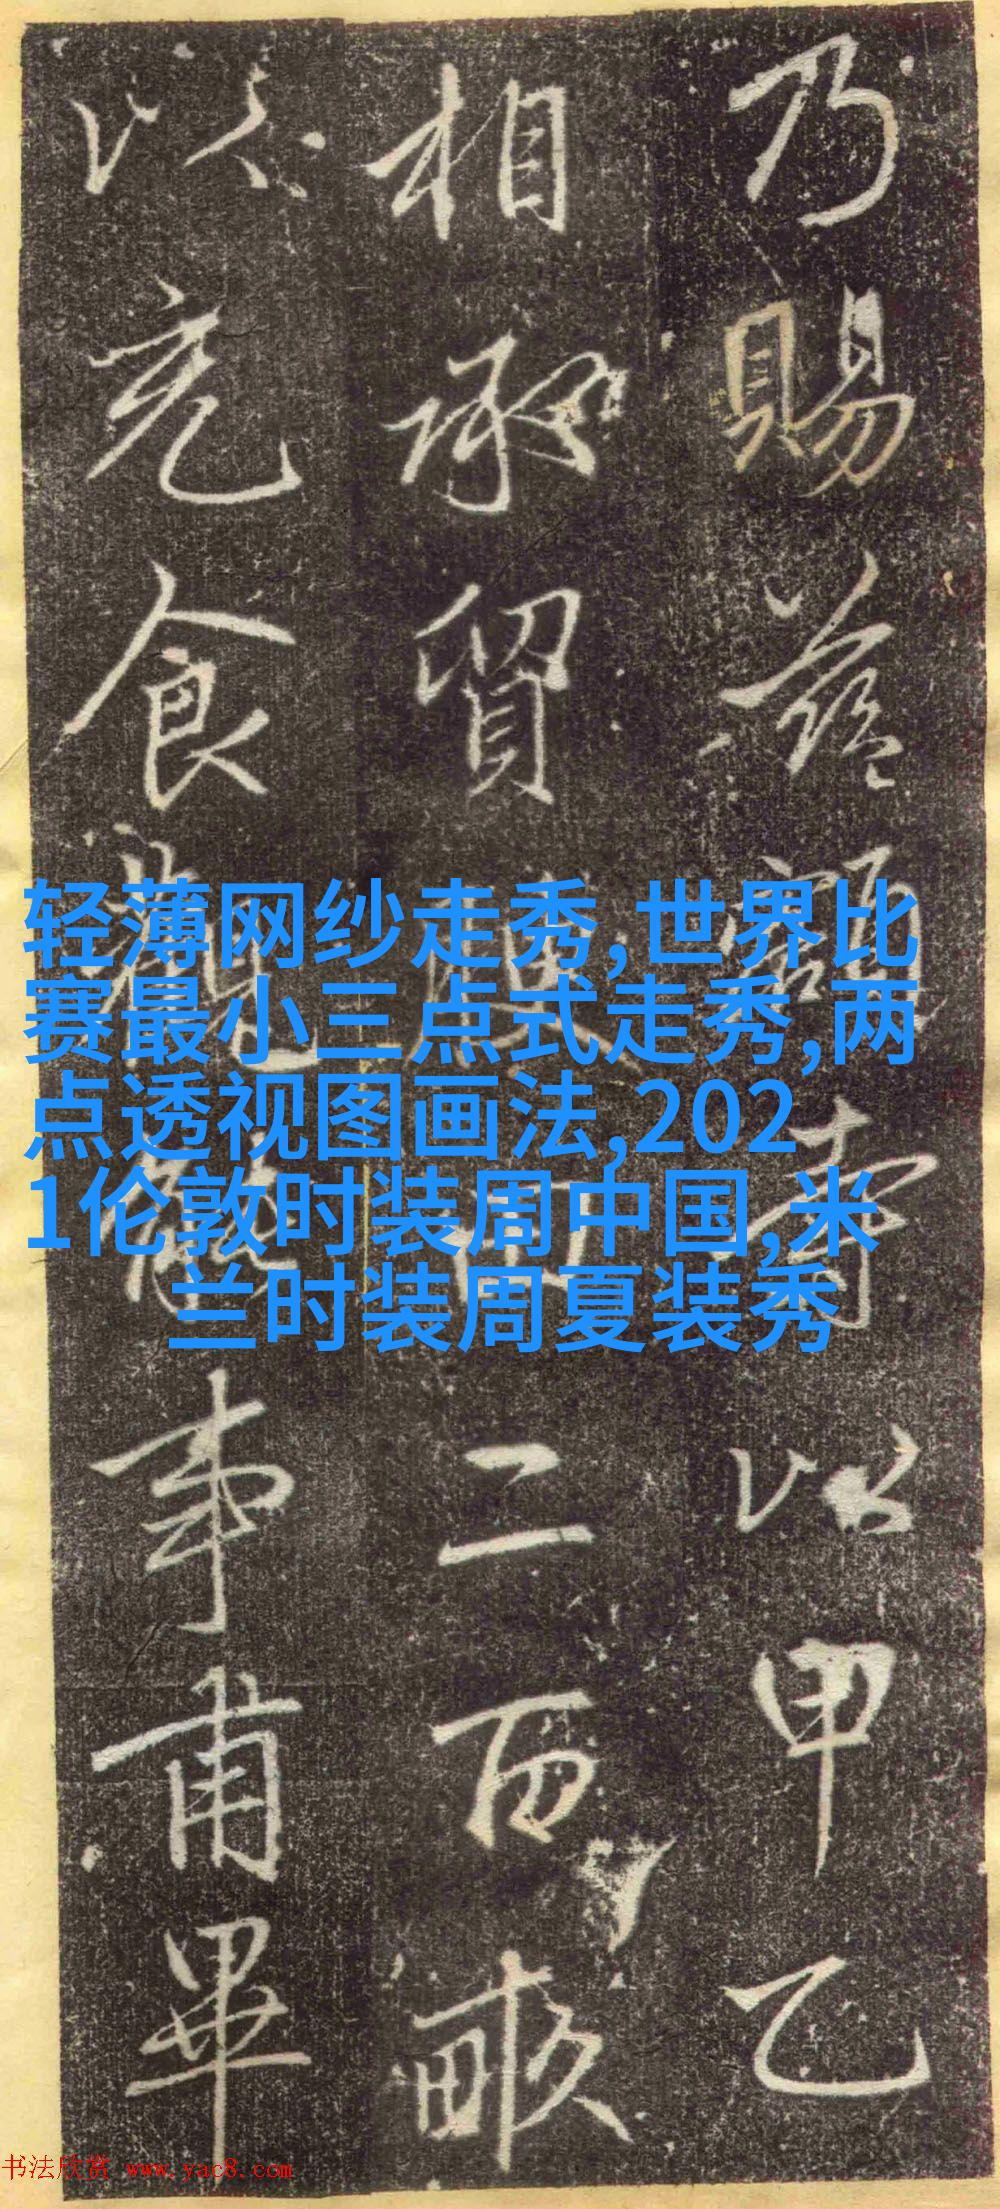 乃賜額寺以甲乙
相承買田二百畝
以充食事甫畢
轻薄网纱走秀,世界比
赛最小三点式走秀,两
点透视图画法,202
1伦敦时装周中国,米
兰时装周夏装秀
书法欣赏 www.yac8.com